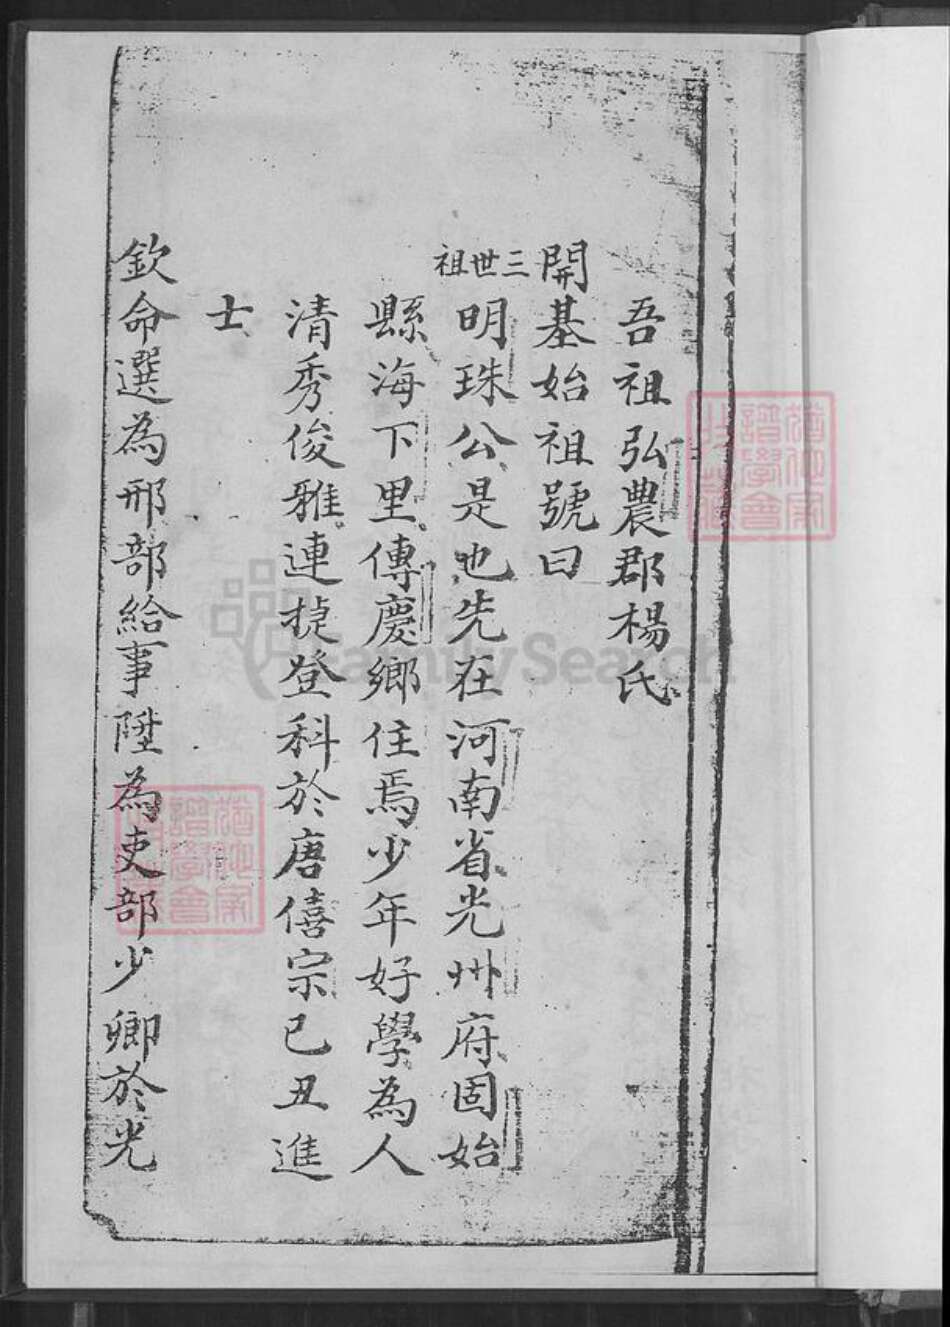 吾祖弘農郡楊氏
開基始祖號曰
三世祖
明珠公是也先在河南省光州府固始
縣海下里傳慶鄉住焉少年好學為人
清秀俊雅連捷登科於唐僖宗已丑進
士
欽命選為邢部給事陞為吏部少卿於光
FamilySearch